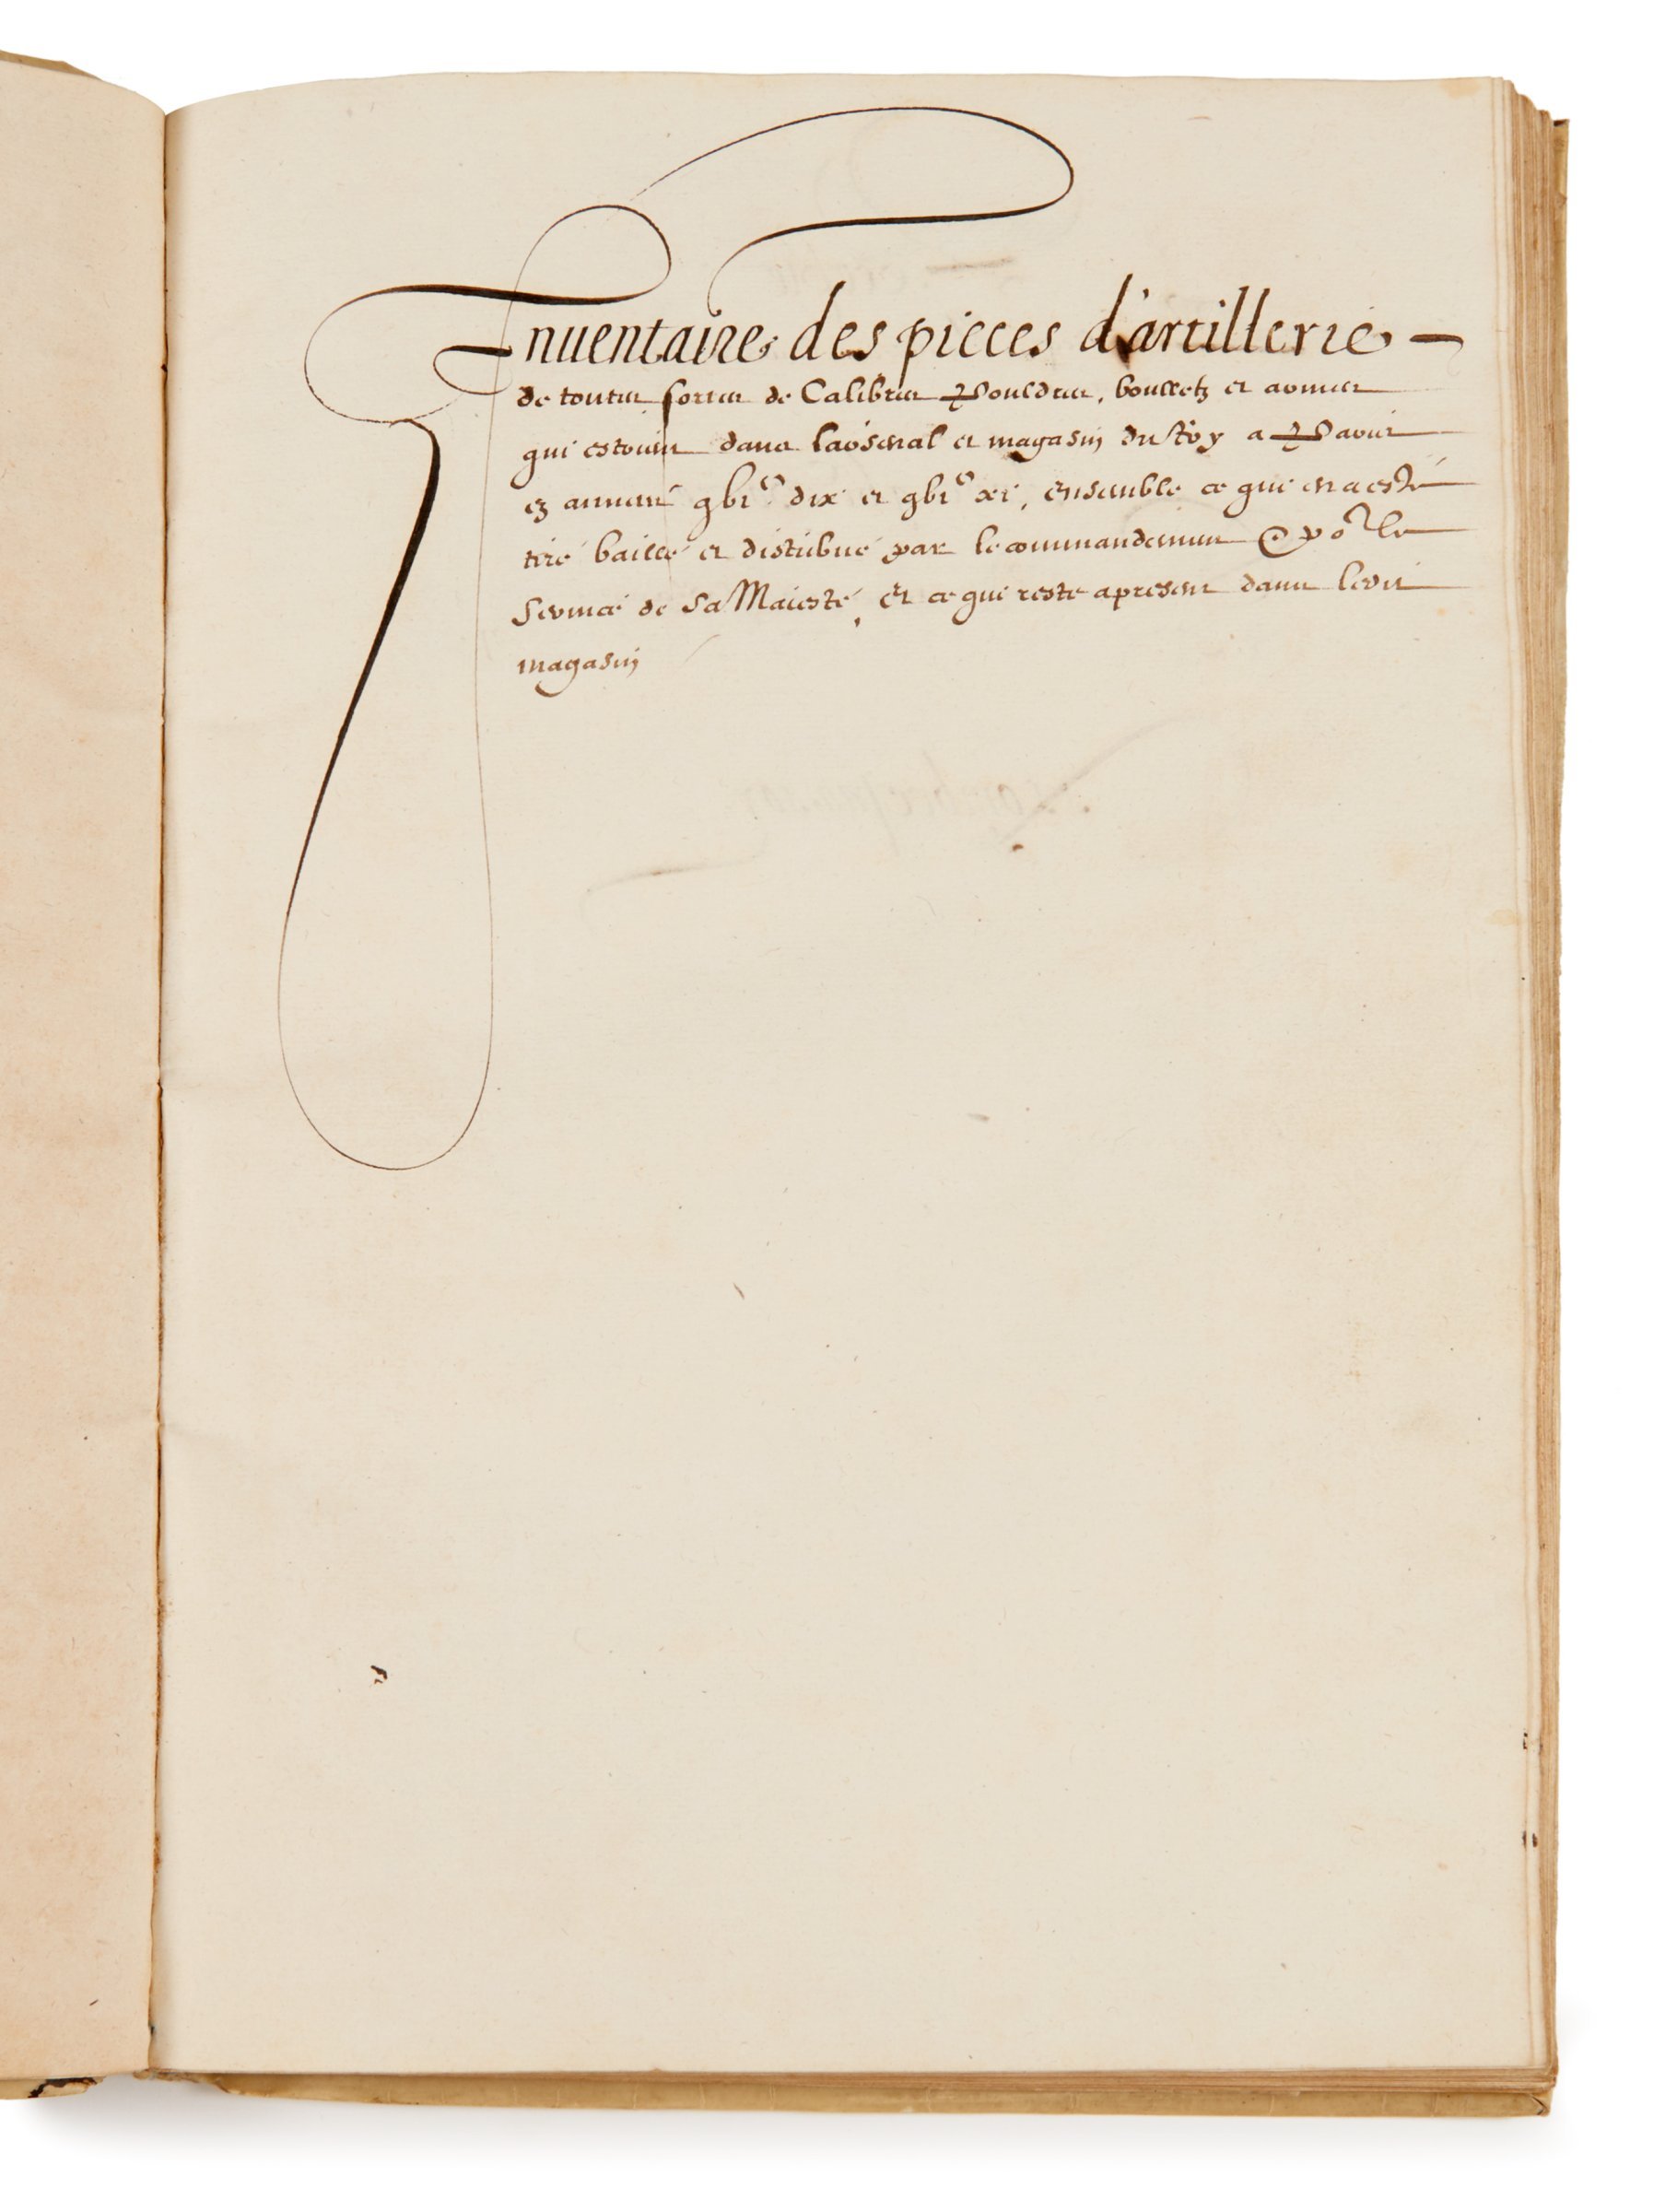 Inuentaire des pieces d'artillerie
de toutes sortes de Calibres Pouldres, boulletz et armes
qui estoient dans larsenal et magasin du Roy a Paris
ez annees dix et xi, ensemble ce qui en a esté
tiré baillé et distribué par le commandement et por le
Seruice de Sa Maiesté, et ce qui reste apresent dans ledit
magasin